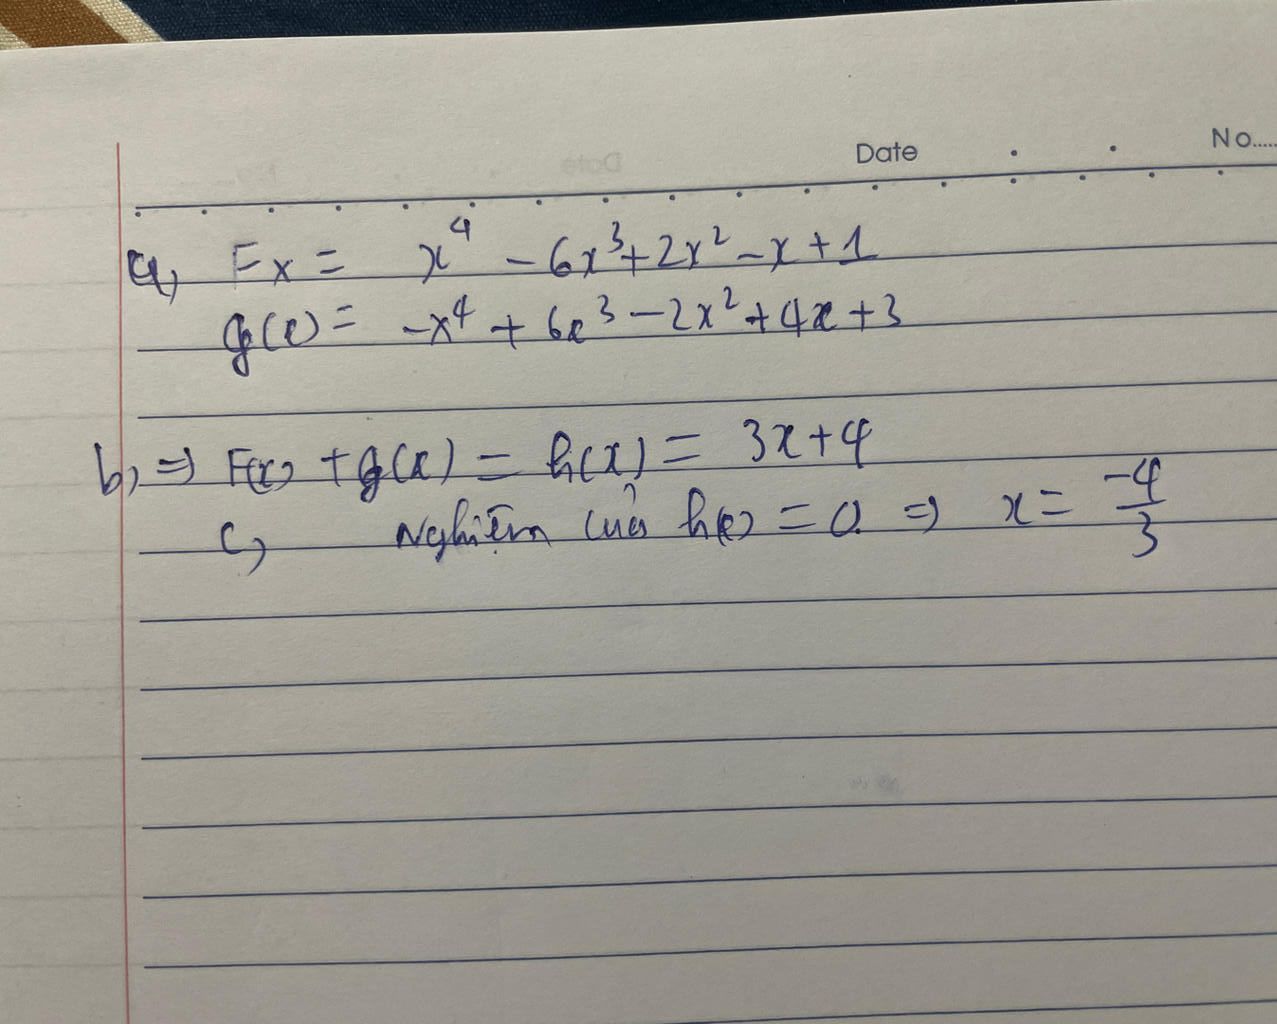 Date No.....
a, Fx = x⁴ - 6x³ + 2x² - x + 1
g(x) = -x⁴ + 6x³ - 2x² + 4x + 3
b, => F(x) + g(x) = h(x) = 3x + 4
c, Nghiệm của h(x) = 0 => x = -4/3